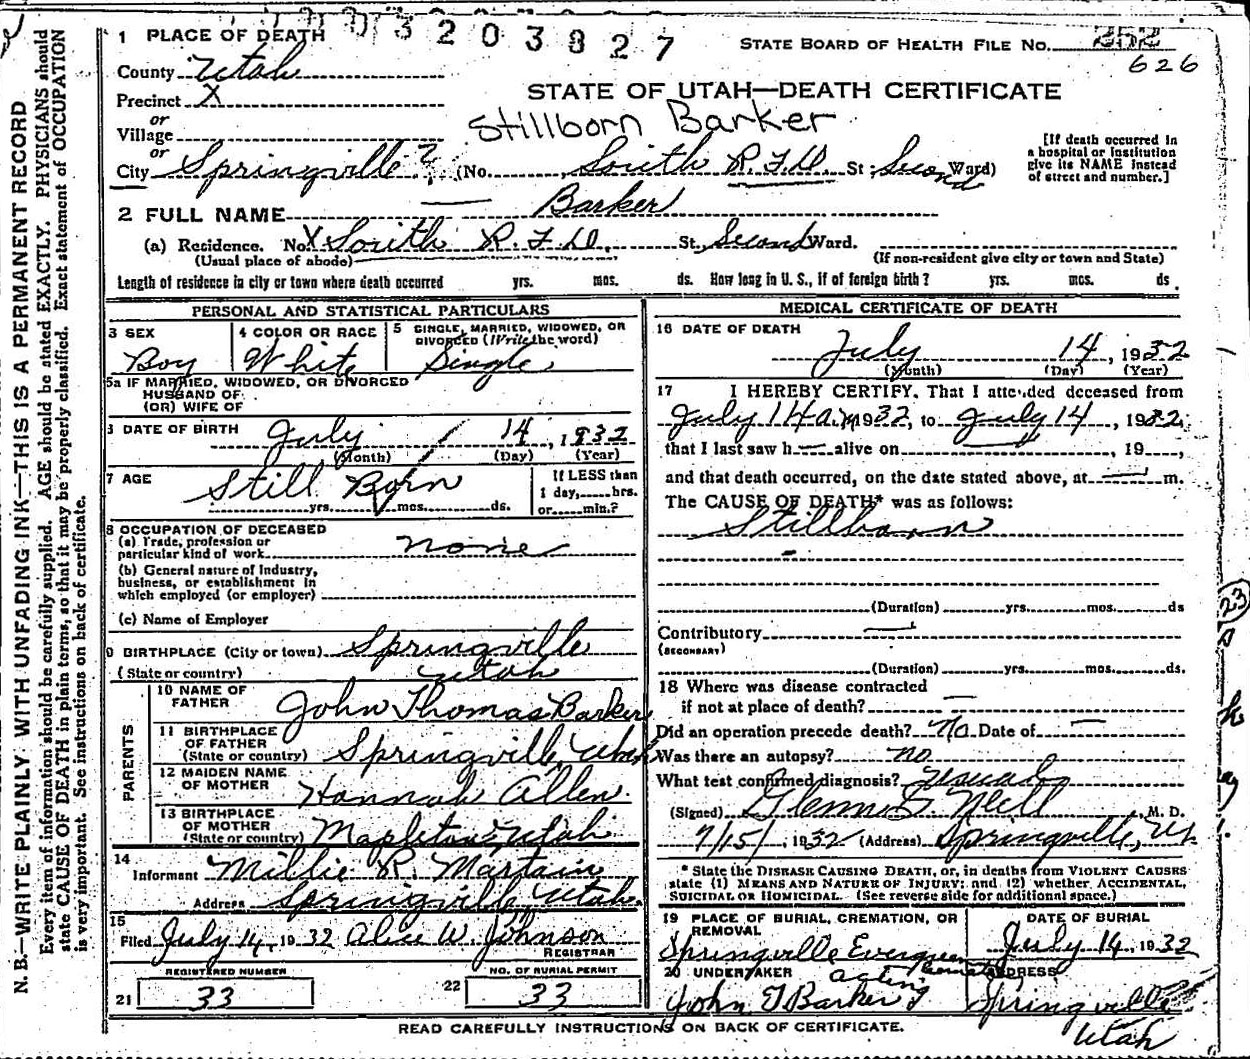 3203827
1 PLACE OF DEATH
STATE BOARD OF HEALTH FILE NO. 252
626
County Utah
Precinct X
STATE OF UTAH—DEATH CERTIFICATE
or
Village
Stillborn Barker
or
City Springville? (No. South R.F.D. St; Second Ward)
[If death occurred in a hospital or institution give its NAME instead of street and number.]
2 FULL NAME Barker
(a) Residence. No. X South R.F.D. St. Second Ward.
(Usual place of abode) (If non-resident give city or town and State)
Length of residence in city or town where death occurred yrs. mos. ds. How long in U. S., if of foreign birth? yrs. mos. ds.
PERSONAL AND STATISTICAL PARTICULARS
3 SEX Boy
4 COLOR OR RACE White
5 SINGLE, MARRIED, WIDOWED, OR DIVORCED (Write the word) Single
5a IF MARRIED, WIDOWED, OR DIVORCED
HUSBAND OF
(OR) WIFE OF
DATE OF BIRTH July 14, 1932
(Month) (Day) (Year)
7 AGE Still Born
yrs. mos. ds.
If LESS than
1 day, hrs.
or min.?
8 OCCUPATION OF DECEASED
(a) Trade, profession or particular kind of work none
(b) General nature of Industry, business, or establishment in which employed (or employer)
(c) Name of Employer
9 BIRTHPLACE (City or town) Springville
(State or country) Utah
PARENTS
10 NAME OF FATHER John Thomas Barker
11 BIRTHPLACE OF FATHER
(State or country) Springville, Utah
12 MAIDEN NAME OF MOTHER Hannah Allen
13 BIRTHPLACE OF MOTHER
(State or country) Mapleton, Utah
14
Informant Millie R. Martain
Address Springville Utah.
15
Filed July 14, 1932 Alice W. Johnson
REGISTRAR
REGISTERED NUMBER
21 33
NO. OF BURIAL PERMIT
22 33
MEDICAL CERTIFICATE OF DEATH
16 DATE OF DEATH
July 14, 1932
(Month) (Day) (Year)
17 I HEREBY CERTIFY, That I attended deceased from
July 14 1932, to July 14, 1932,
that I last saw h— alive on , 19 ,
and that death occurred, on the date stated above, at — m.
The CAUSE OF DEATH* was as follows:
Stillborn
(Duration) yrs. mos. ds
Contributory
(SECONDARY)
(Duration) yrs. mos. ds.
18 Where was disease contracted
if not at place of death? —
Did an operation precede death? No Date of —
Was there an autopsy? no
What test confirmed diagnosis? usual
(Signed) Glenn S. Neill M. D.
7/15/, 1932 (Address) Springville, Ut
* State the DISEASE CAUSING DEATH, or, in deaths from VIOLENT CAUSES
state (1) MEANS AND NATURE OF INJURY; and (2) whether ACCIDENTAL,
SUICIDAL OR HOMICIDAL. (See reverse side for additional space.)
19 PLACE OF BURIAL, CREMATION, OR REMOVAL
Springville Evergreen
DATE OF BURIAL
July 14, 1932
20 UNDERTAKER acting
John T Barker
ADDRESS
Springville
Utah
READ CAREFULLY INSTRUCTIONS ON BACK OF CERTIFICATE.
N. B.—WRITE PLAINLY, WITH UNFADING INK—THIS IS A PERMANENT RECORD
Every item of information should be carefully supplied. AGE should be stated EXACTLY. PHYSICIANS should
state CAUSE OF DEATH in plain terms, so that it may be properly classified. Exact statement of OCCUPATION
is very important. See instructions on back of certificate.
23